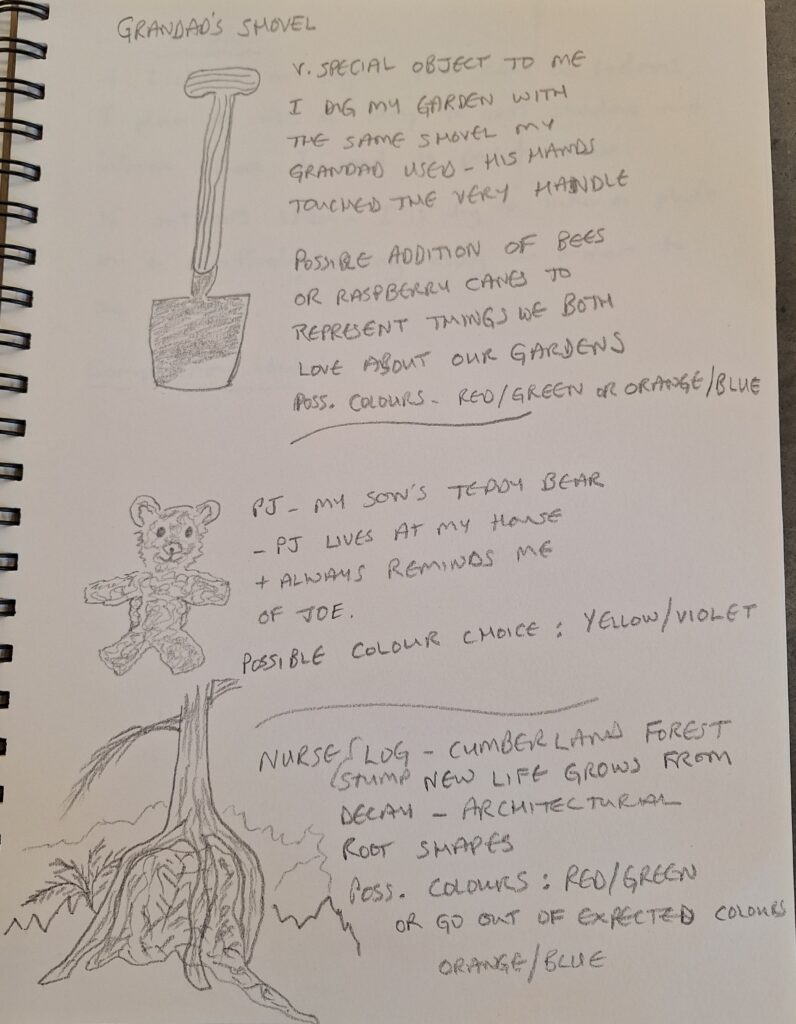 GRANDAD'S SHOVEL
V. SPECIAL OBJECT TO ME
I DIG MY GARDEN WITH
THE SAME SHOVEL MY
GRANDAD USED - HIS HANDS
TOUCHED THE VERY HANDLE
POSSIBLE ADDITION OF BEES
OR RASPBERRY CANES TO
REPRESENT THINGS WE BOTH
LOVE ABOUT OUR GARDENS
POSS. COLOURS - RED/GREEN OR ORANGE/BLUE
PJ - MY SON'S TEDDY BEAR
- PJ LIVES AT MY HOUSE
+ ALWAYS REMINDS ME
OF JOE.
POSSIBLE COLOUR CHOICE : YELLOW/VIOLET
NURSE/LOG - CUMBERLAND FOREST
/STUMP NEW LIFE GROWS FROM
DECAY - ARCHITECTURAL
ROOT SHAPES
POSS. COLOURS : RED/GREEN
OR GO OUT OF EXPECTED COLOURS
ORANGE/BLUE